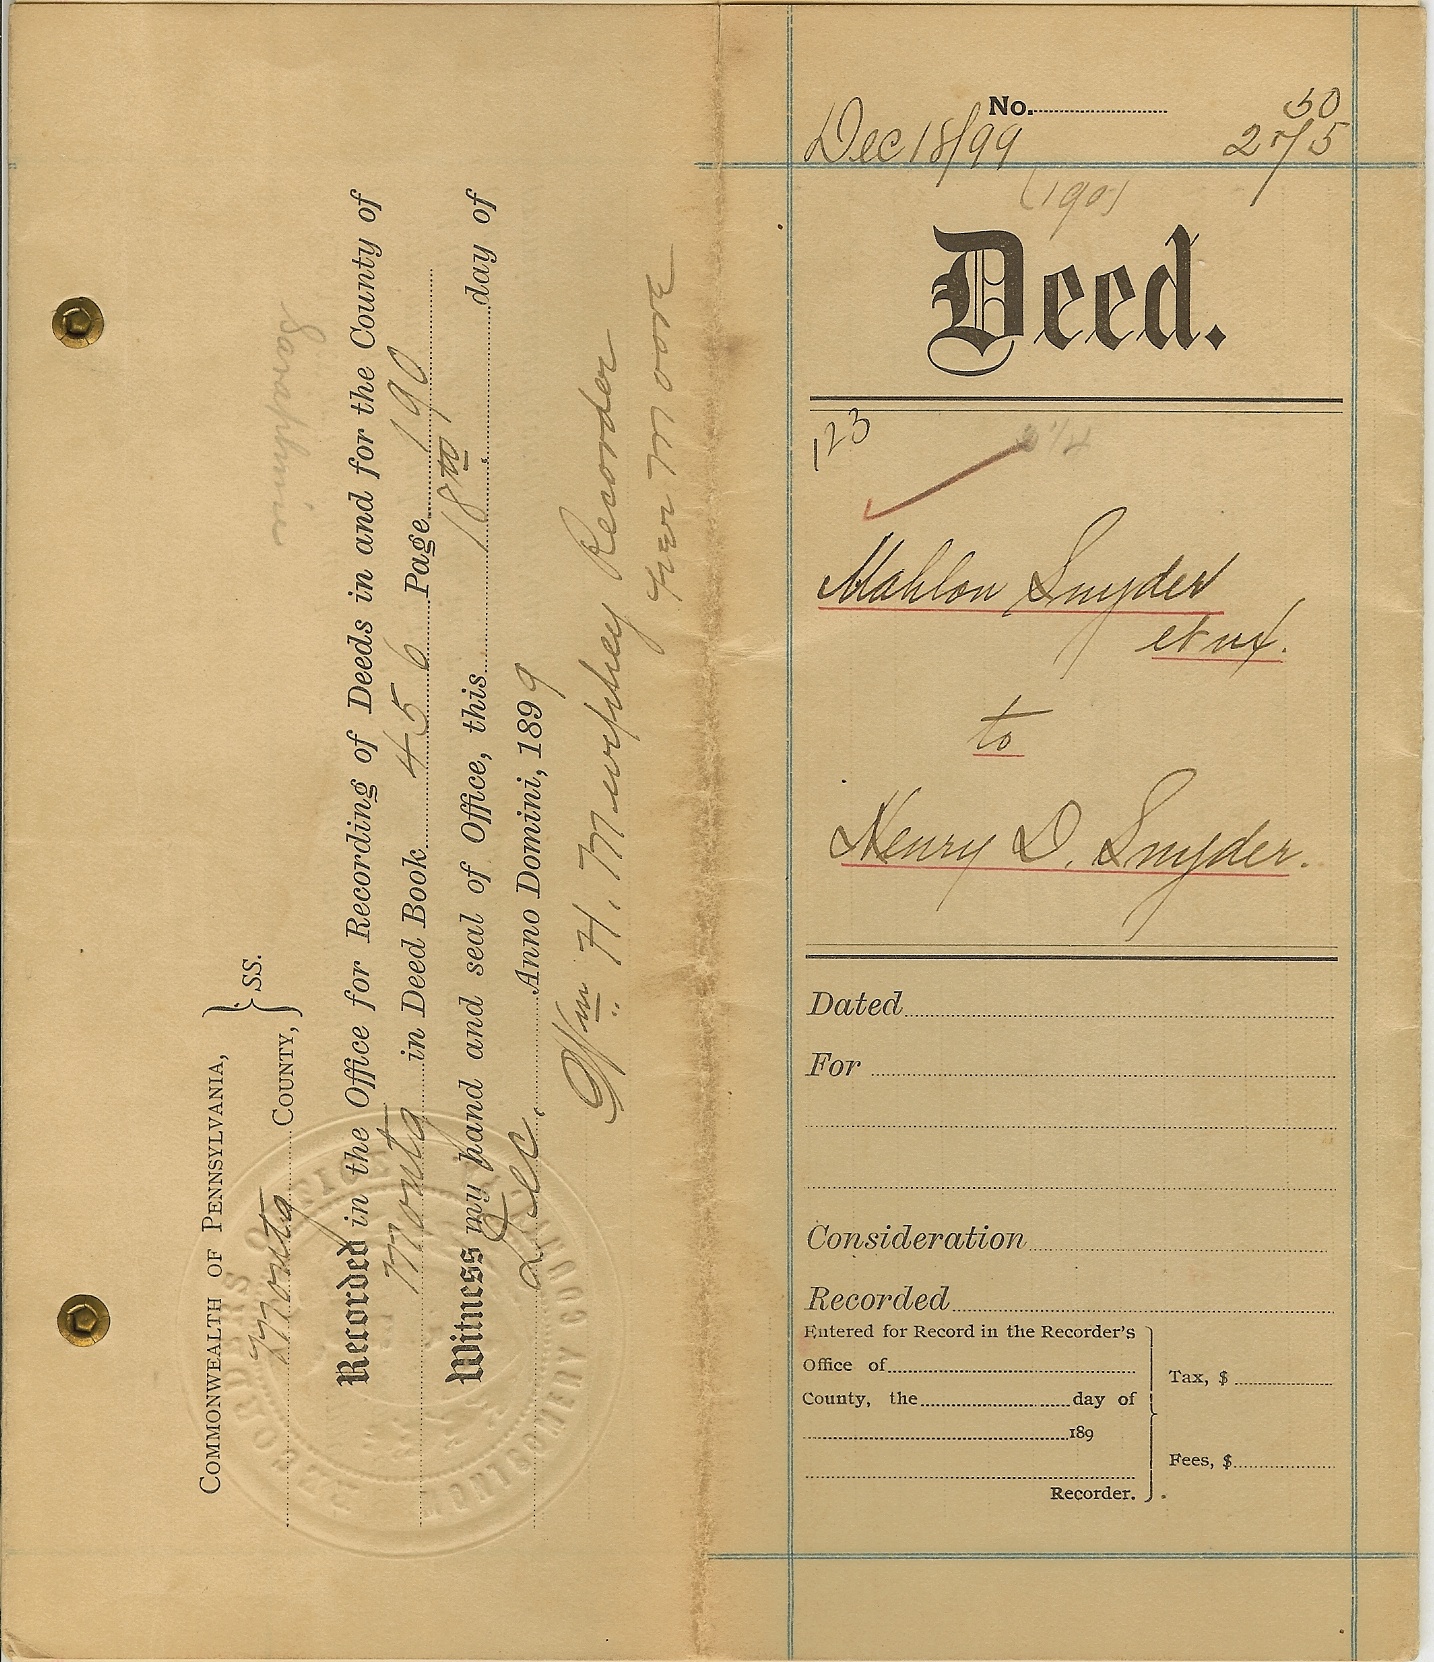 COMMONWEALTH OF PENNSYLVANIA,
Montg COUNTY, } SS.
Recorded in the Office for Recording of Deeds in and for the County of
Montg in Deed Book 456 Page 190
Witness my hand and seal of Office, this 18th day of
Dec. Anno Domini, 1899
Wm H. Murphey Recorder
per Moore
RECORDERS OFFICE
MONTGOMERY COUNTY
No.
50
Dec 18/99 275
(190)
Deed.
123
Mahlon Snyder
et ux.
to
Henry D. Snyder.
Dated
For
Consideration
Recorded
Entered for Record in the Recorder's
Office of
County, the day of
189
Recorder.
Tax, $
Fees, $